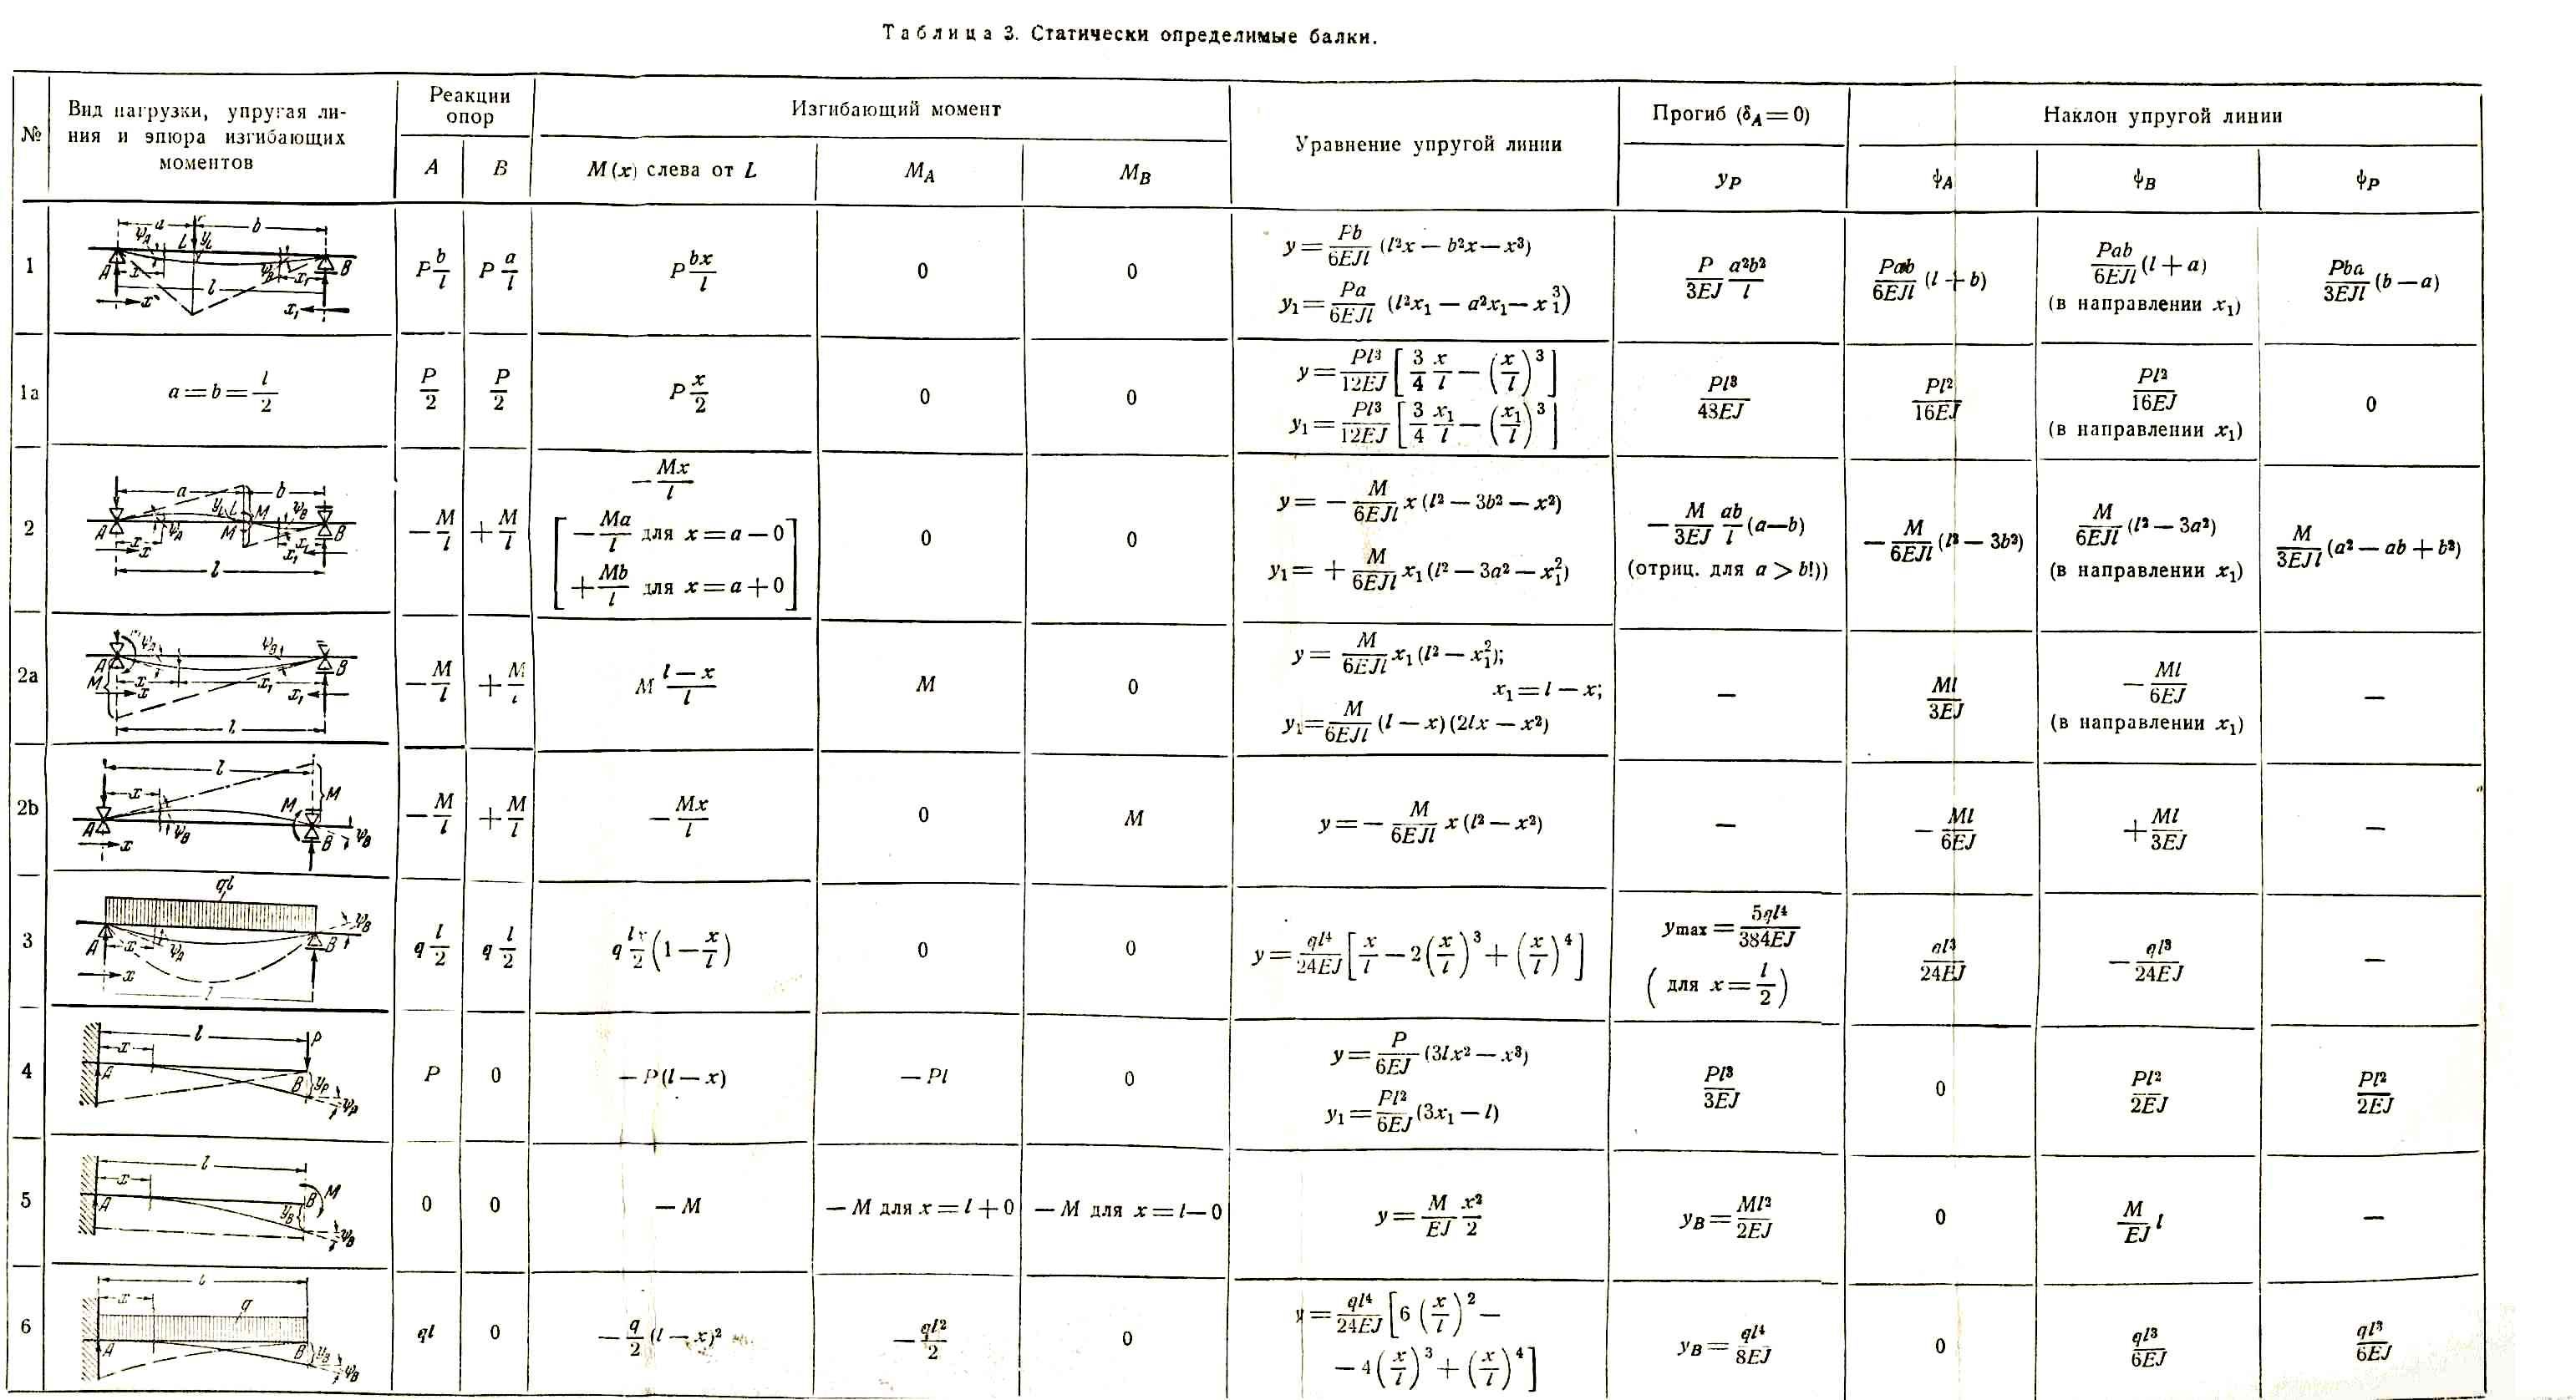 Таблица 3. Статически определимые балки.
№
Вид нагрузки, упругая ли-
ния и эпюра изгибающих
моментов
Реакции
опор
A
B
Изгибающий момент
M(x) слева от L
M_A
M_B
Уравнение упругой линии
Прогиб (δ_A = 0)
y_P
Наклон упругой линии
ψ_A
ψ_B
ψ_P
1
a b
ψ_A L y_L
A x ψ_B x₁ B
l
x x₁
P b/l
P a/l
P bx/l
0
0
y = Pb/6EJl (l²x — b²x — x³)
y₁ = Pa/6EJl (l²x₁ — a²x₁ — x₁³)
P/3EJ a²b²/l
Pab/6EJl (l + b)
Pab/6EJl (l + a)
(в направлении x₁)
Pba/3EJl (b — a)
1a
a = b = l/2
P/2
P/2
P x/2
0
0
y = Pl³/12EJ [3/4 x/l — (x/l)³]
y₁ = Pl³/12EJ [3/4 x₁/l — (x₁/l)³]
Pl³/48EJ
Pl²/16EJ
Pl²/16EJ
(в направлении x₁)
0
2
a b
y_L L M ψ_B
A x ψ_A M x₁ B
x x₁
l
— M/l
+ M/l
— Mx/l
[— Ma/l для x = a — 0
+ Mb/l для x = a + 0]
0
0
y = — M/6EJl x (l² — 3b² — x²)
y₁ = + M/6EJl x₁ (l² — 3a² — x₁²)
— M/3EJ ab/l (a—b)
(отриц. для a > b!))
— M/6EJl (l² — 3b²)
M/6EJl (l² — 3a²)
(в направлении x₁)
M/3EJl (a² — ab + b²)
2a
ψ_A ψ_B
A B
M x x₁
x x₁
l
— M/l
+ M/l
M l — x/l
M
0
y = M/6EJl x₁ (l² — x₁²);
x₁ = l — x;
y₁ = M/6EJl (l — x) (2lx — x²)
—
Ml/3EJ
— Ml/6EJ
(в направлении x₁)
—
2b
l
x M M
A ψ_B B ψ_B
x
— M/l
+ M/l
— Mx/l
0
M
y = — M/6EJl x (l² — x²)
—
— Ml/6EJ
+ Ml/3EJ
—
3
ql
ψ_B
A x ψ_A B
x
l
q l/2
q l/2
q lx/2 (1 — x/l)
0
0
y = ql⁴/24EJ [x/l — 2(x/l)³ + (x/l)⁴]
y_max = 5ql⁴/384EJ
(для x = l/2)
ql³/24EJ
— ql³/24EJ
—
4
l
x P
A B y_P
ψ_P
P
0
— P(l — x)
— Pl
0
y = P/6EJ (3lx² — x³)
y₁ = Pl²/6EJ (3x₁ — l)
Pl³/3EJ
0
Pl²/2EJ
Pl²/2EJ
5
l
x
A B M
y_B
ψ_B
0
0
— M
— M для x = l + 0
— M для x = l — 0
y = M/EJ x²/2
y_B = Ml²/2EJ
0
M/EJ l
—
6
l
x q
A B y_B
ψ_B
ql
0
— q/2 (l — x)²
— ql²/2
0
y = ql⁴/24EJ [6 (x/l)² —
— 4(x/l)³ + (x/l)⁴]
y_B = ql⁴/8EJ
0
ql³/6EJ
ql³/6EJ